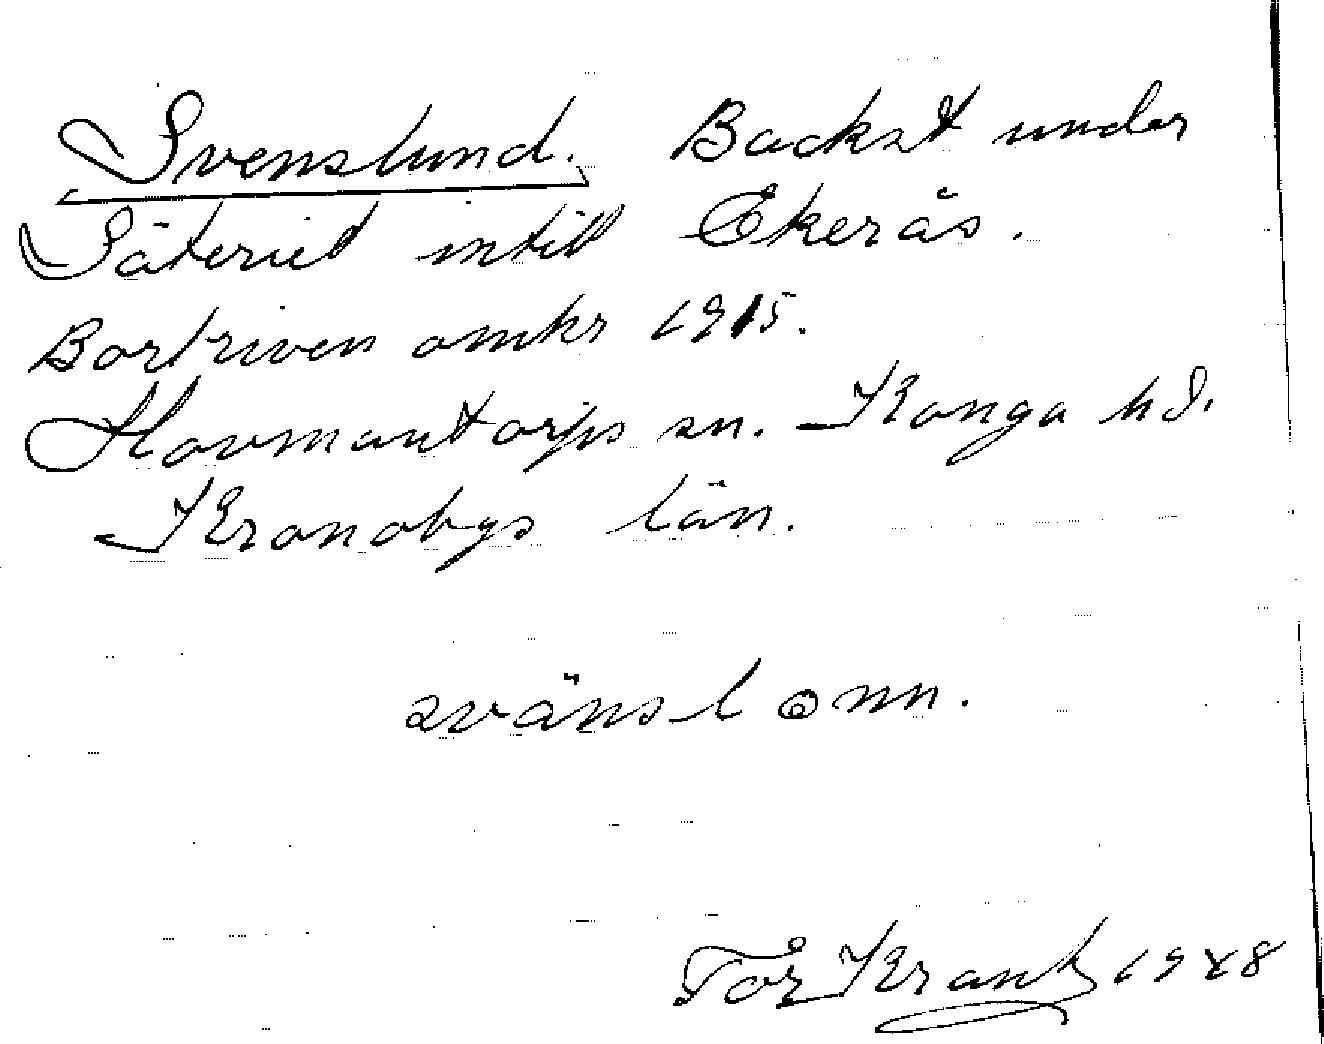 Svenslund. Backst under
Säteriet intill Ekerås.
Bortriven omkr 1915.
Hovmantorps sn. Konga hd.
Kronobgs län.
svänslonn.
Tor Krantz 1948